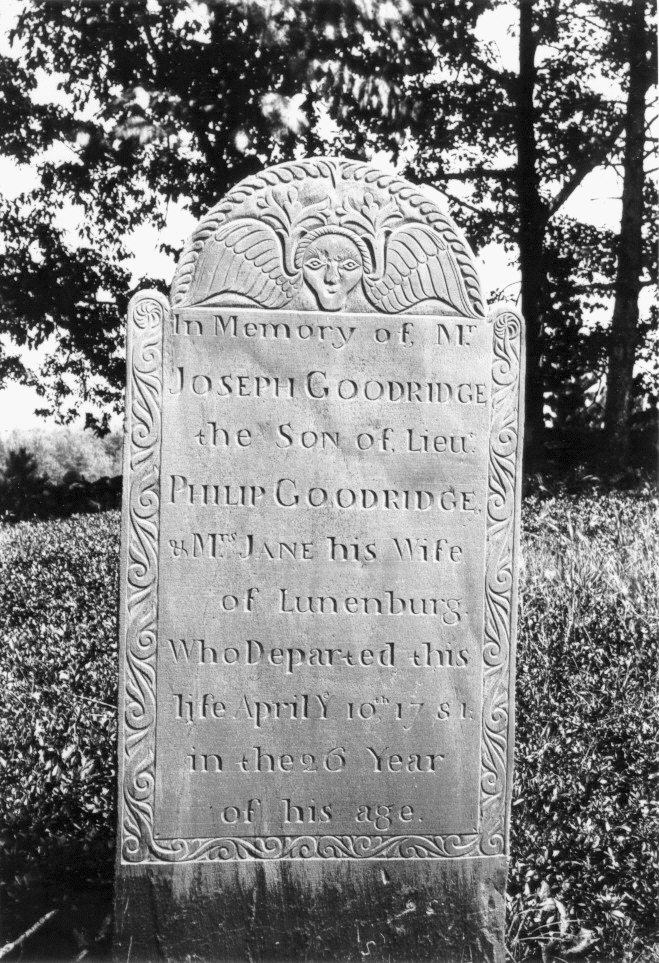 In Memory of, Mr.
JOSEPH GOODRIDGE
the SON of, Lieut.
PHILIP GOODRIDGE,
& Mrs. JANE his Wife
of Lunenburg.
Who Departed this
life April ye 10th, 1781.
in the 26 Year
of his age.